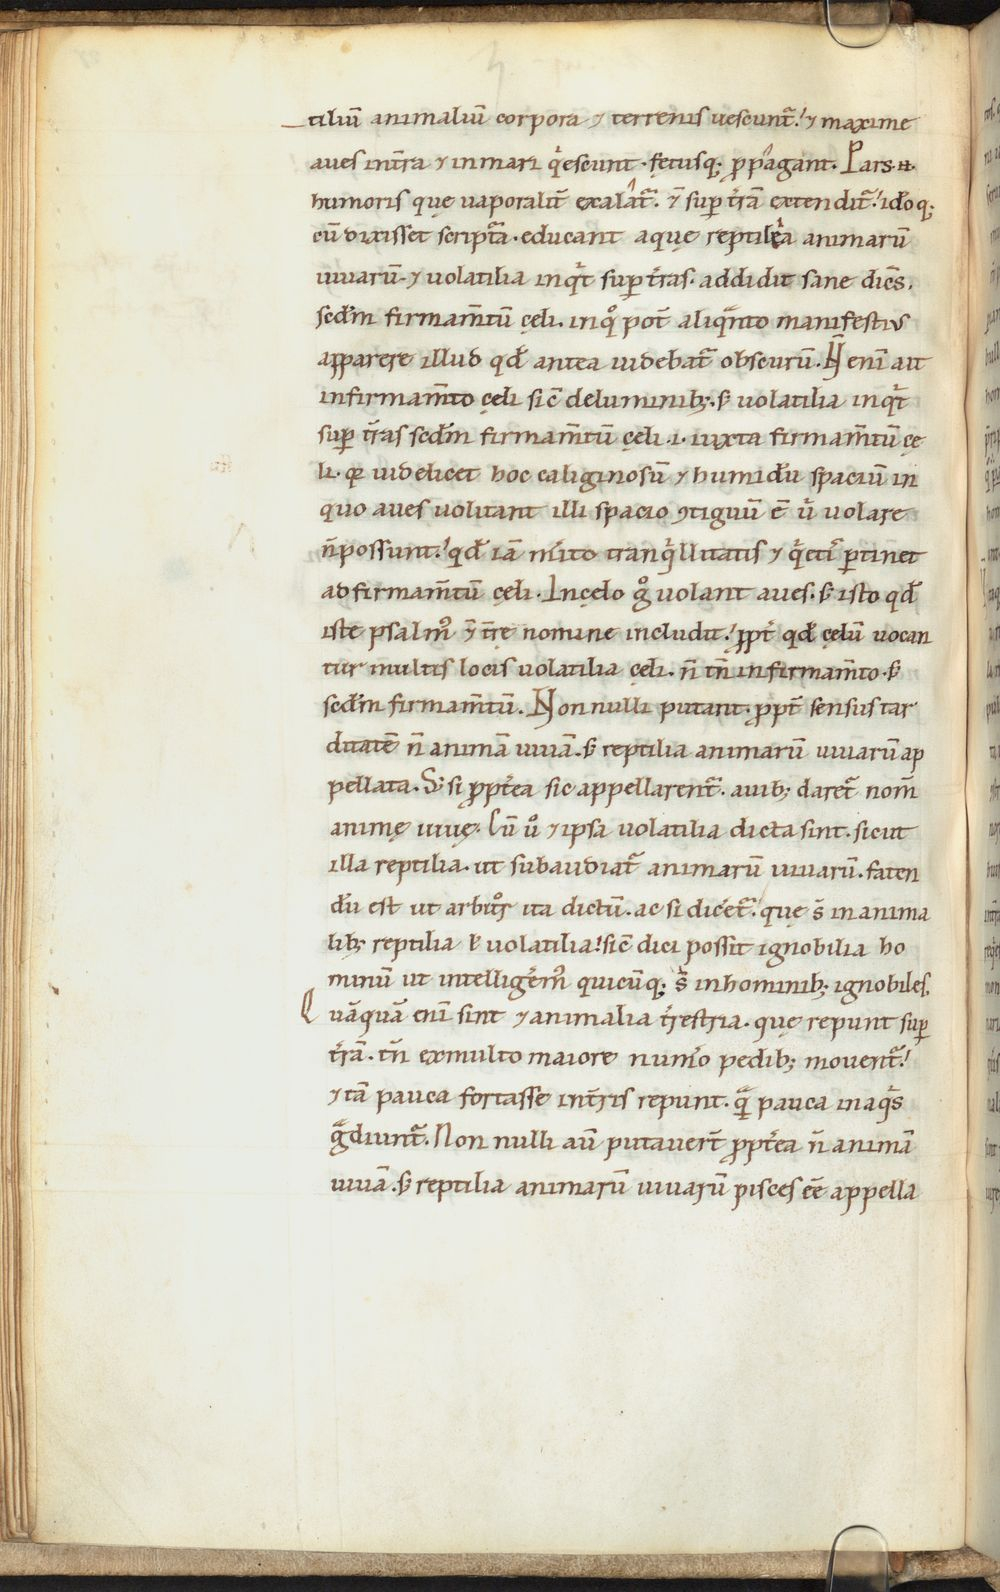 tiliū animaliū corpora ⁊ terrenis uescunt᷑. ⁊ maxime
aues intr̄a ⁊ inmari q̇escunt. fętusq; ꝓpagant. Pars. ħ.
humoris quę uaporalit̄ exalat᷑. ⁊ sup̄ tr̄ā extendit᷑. ido q;
cū dixisset script᷑a. educant aquę reptilia animarū
uiuarū. ⁊ uolatilia inqͥt sup̄ tr̄as. addidit sane diēs.
scdm̄ firmam̄tū cęli. inqͦ pot̄ aliqᵃnto manifestius
apparere illud qd̄ antea uidebat᷑ obscurū. N̄ enī ait
infirmam̄to cęli sic̄ deluminib;. s; uolatilia inqͥt
sup̄ tr̄as scdm̄ firmam̄tū cęli .i. iuxta firmam̄tū cę
li. qꝛ uidelicet hoc caliginosū ⁊ humidū spaciū in
quo aues uolitant illi spacio ꝯtiguū ē u᷑ uolare
n̄possunt. qd̄ iā m̄ito tranqͥllitatis ⁊ qͥeti ꝑtinet
adfirmam̄tū cęli. Incęlo gͦ uolant aues. s; isto qd̄
iste psalm᷒ ⁊ tr̄ę nomine includit. ꝓpt̄ qd̄ cęlū uocan
tur multis locis uolatilia cęli. n̄ tn̄ infirmam̄to. s;
scdm̄ firmam̄tū. Non nulli putant. ꝓpt̄ sensus tar
ditatē n̄ animā uiuā. s; reptilia animarū uiuarū ap
pellata. S; si ꝓpt̄ea sic appellarent᷑. auib; daret᷑ nom̄
animę uiuę. Cū u᷑o ⁊ ipsa uolatilia dicta sint. sicut
illa reptilia. ut subaudiat᷑ animarū uiuarū. faten
dū est ut arbit᷑r ita dictū. ac si dicet᷑. quę s̄ in anima
lib; reptilia ł uolatilia. sic̄ dici possit ignobilia ho
minū ut intelligem᷒ quicūq; s̄ inhominib; ignobiles.
Quāquā enī sint ⁊ animalia tr̄estria. quę repunt sup̄
tr̄ā. tn̄ exmulto maiore num̄o pedib; mouent᷑.
⁊ tā pauca fortasse intr̄is repunt. qᵃ pauca inaqͥs
gᵃdiunt᷑. Non nulli aū putauer̄t ꝓpt̄ea n̄ animā
uiuā. s; reptilia animarū uiuarū pisces eē appella